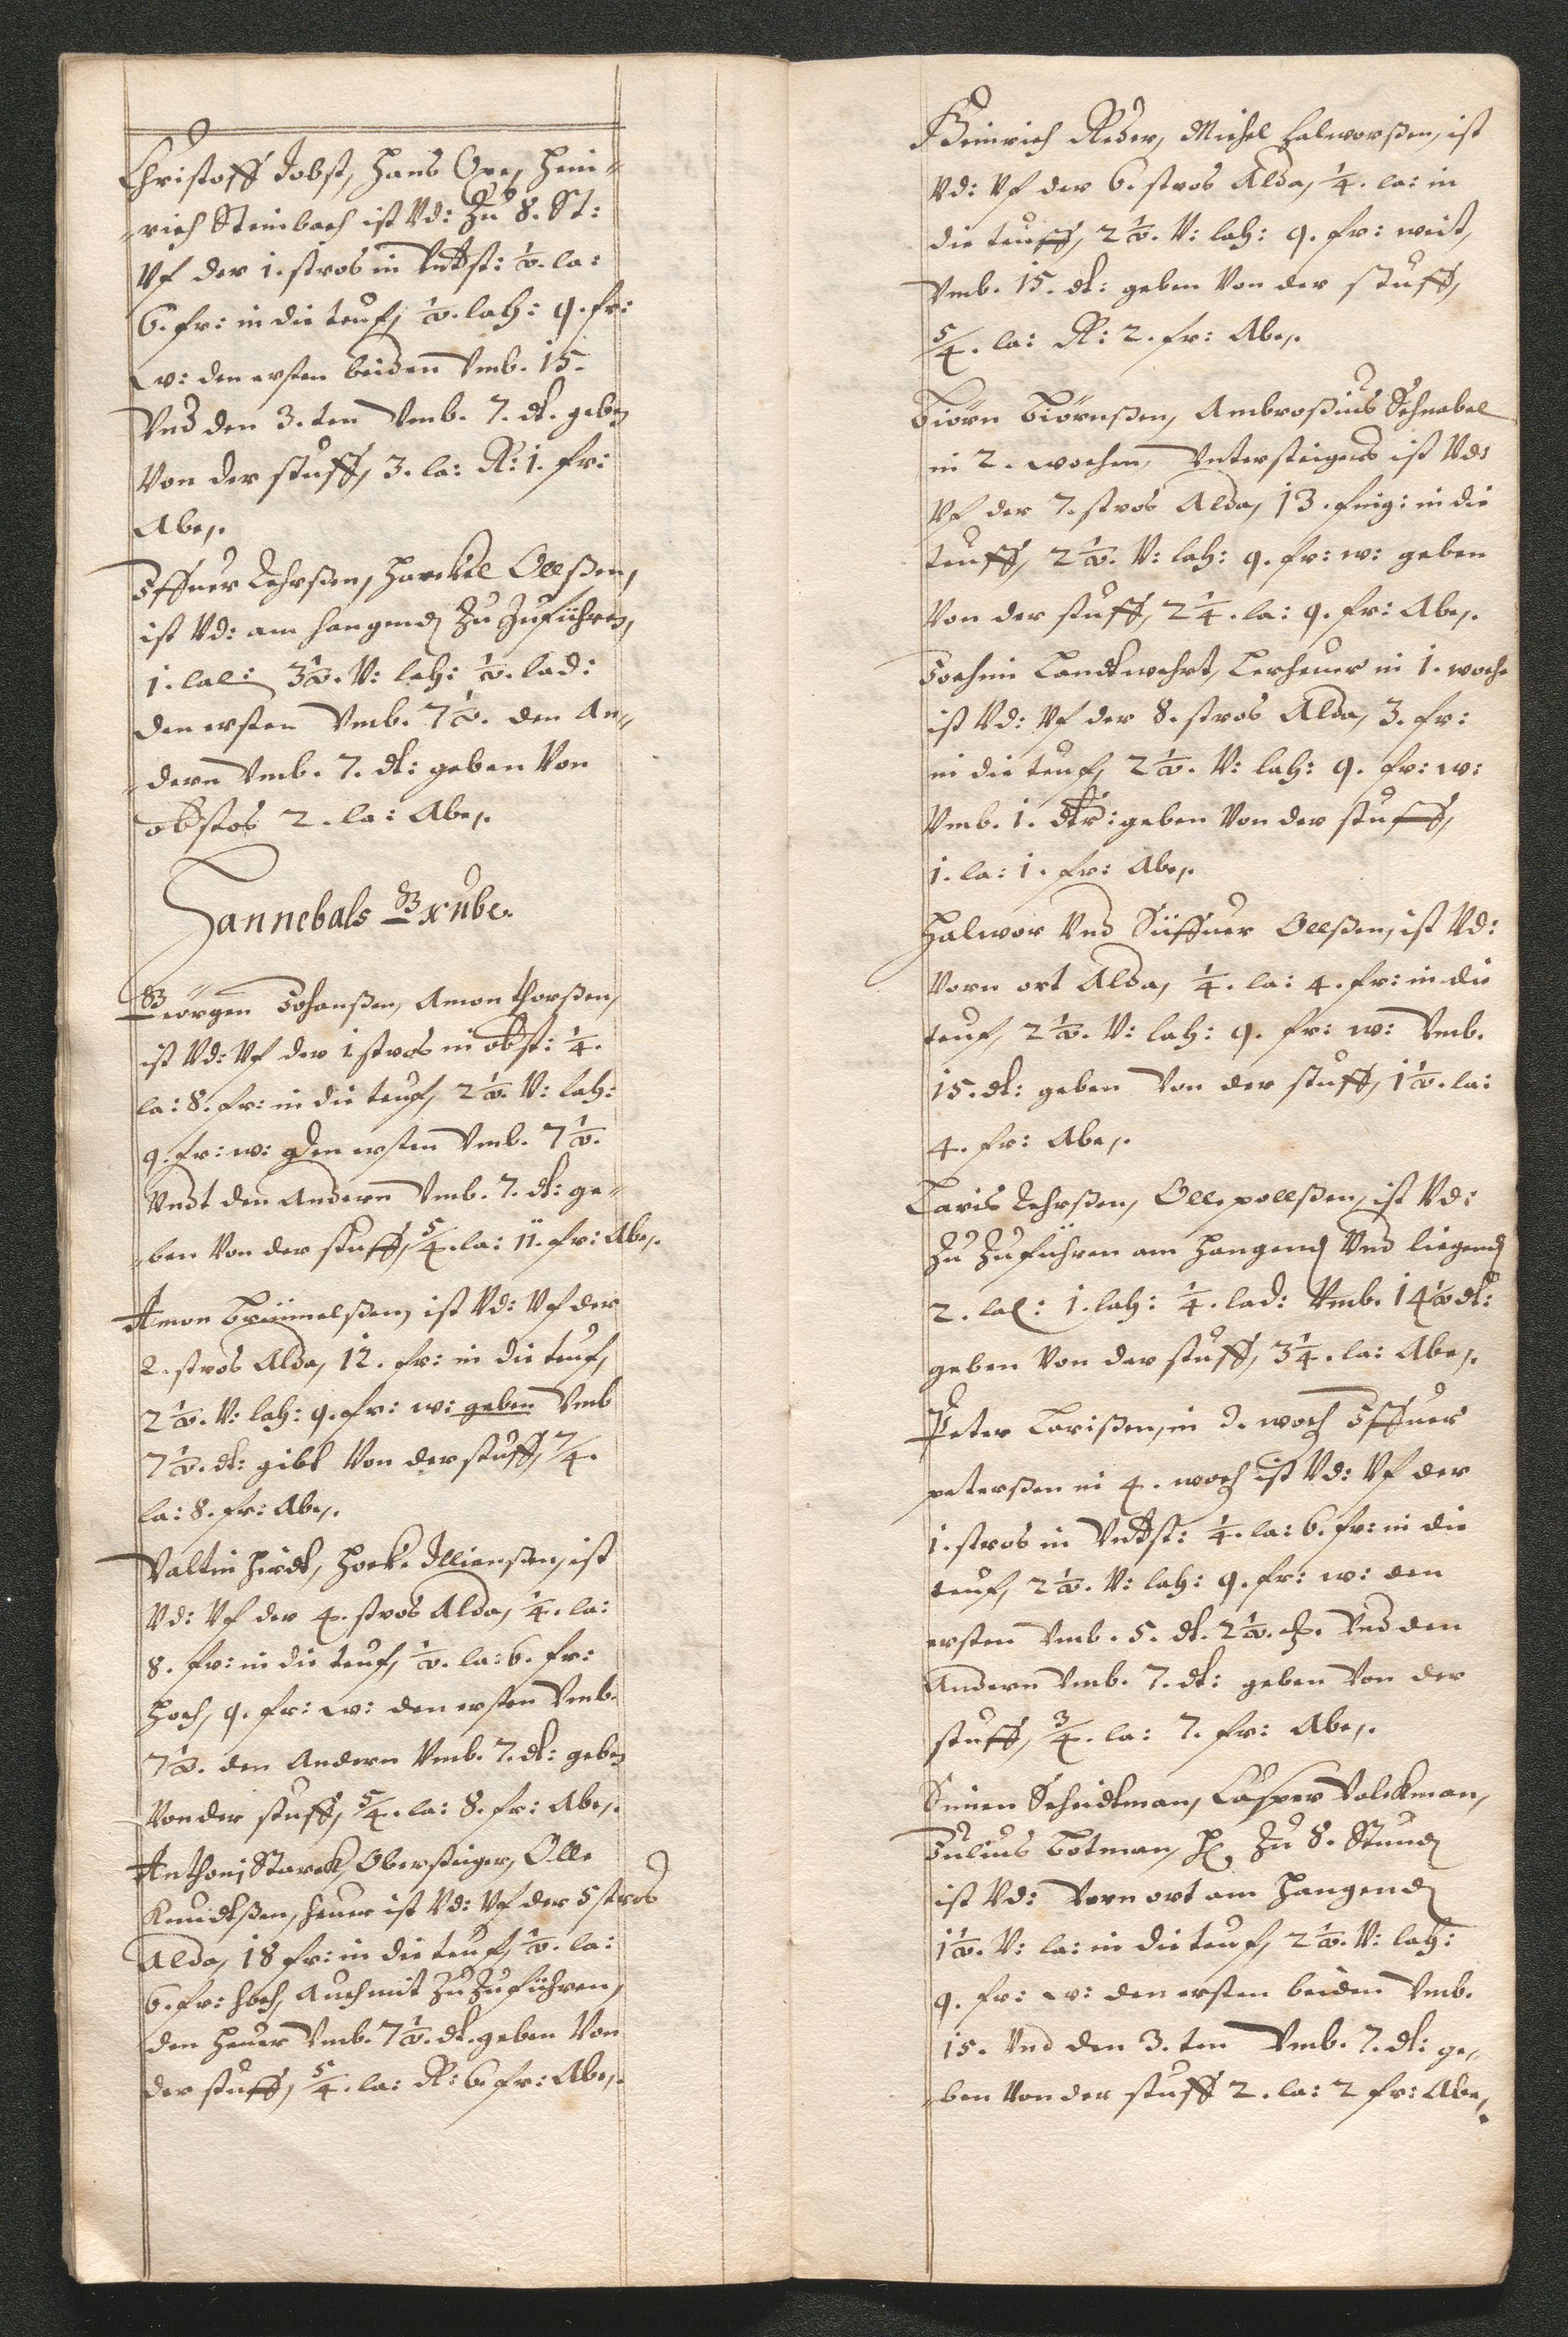 Christoff Jobst, Hans Ore, Hein-
-rich Steinbach ist Vd: Zu 8. St:
Vf der 1. stros in Vndtst: ½. la:
6. fr: in die teuf, ½. lah: 9. fr:
w: den ersten beiden Vmb. 15.
Vnd den 3.ten Vmb. 7. dl. geben
Von der stuff, 3. la: R: 1. fr:
Abe,.
Iffuer Lehrßen, Harckel Ollßen,
ist Vd: am hangend Zu Zuführen,
1. lal: 3½. V: lah: ½. lad:
den ersten Vmb. 7½. den An-
-dern Vmb. 7. dl: geben Von
obstos 2. la: Abe,.
Hannebals Grube.
Georgen Johanßen, Amon thorßen,
ist Vd: Vf der 1. stros in obst: ¼.
la: 8. fr: in die teuf, 2½. V: lah:
9. fr: w: Den ersten Vmb. 7½.
Vndt den Andern Vmb. 7. dl: ge-
-ben Von der stuff, 5/4. la: 11. fr: Abe,.
Amon Brümelßen, ist Vd: Vf der
2. stros Alda, 12. fr: in die teuf,
2½. V: lah: 9. fr: w: geben Vmb
7½. dl: gibt Von der stuff, 7/4.
la: 8. fr: Abe,.
Valtin Hirdt, Hock. Illienßen, ist
Vd: Vf der 4. stros Alda, ¼. la:
8. fr: in die teuf, ½. la: 6. fr:
hoch, 9. fr: w: den ersten Vmb.
7½. den Andern Vmb. 7. dl: geben
Von der stuff, 5/4. la: 8. fr: Abe,.
Anthoni Starck, Obersteiger, Olle
Knudtßen, heuer ist Vd: Vf der 5 stros
Alda, 18 fr: in die teuf, ½. la:
6. fr: hoch, Auch mit Zu Zuführen,
den heuer Vmb. 7½. dl. geben Von
der stuff, 5/4. la: R: 6. fr: Abe,.
Heinrich Reder, Michel Halworßen, ist
Vd: Vf der 6. stros Alda, ¼. la: in
die teuff, 2½. V: lah: 9. fr: weit,
Vmb. 15. dl: geben Von der stuff,
5/4. la: R: 2. fr: Abe,.
Biörn Biörnßen, Ambroßius Schnabel
in 2. wochen, Vntersteigers ist Vd:
Vf der 7. stros Alda, 13. fing: in die
teuff, 2½. V: lah: 9. fr: w: geben
Von der stuff, 2¼. la: 9. fr: Abe,.
Jochim Landtwehrt, Lerheuer in 1. woche
ist Vd: Vf der 8. stros Alda, 3. fr:
in die teuf, 2½. V: lah: 9. fr: w:
Vmb. 1. dlr: geben Von der stuff,
1. la: 1. fr: Abe,.
Halwor Vnd Siffuer Ollßen, ist Vd:
Vorn ort Alda, ¼. la: 4. fr: in die
teuf, 2½. V: lah: 9. fr: w: Vmb.
15. dl: geben Von der stuff, 1½. la:
4. fr: Abe,.
Laris Lehrßen, Olle pollßen, ist Vd:
Zu Zuführen am Hangend Vnd liegend
2. lal: 1. lah: ¼. lad: Vmb. 14½ dl:
geben Von der stuff, 3¼. la: Abe,.
Peter Larißen, in 3. woch Iffuer
peterßen in 4. woch ist Vd: Vf der
1. stros in Vndtst: ¼. la: 6. fr: in die
teuf, 2½. V: lah: 9. fr: w: den
ersten Vmb. 5. dl. 2½. ß. Vnd den
Andern Vmb. 7. dl: geben Von der
stuff, ¾. la: 7. fr: Abe,.
Simen Scheidtman, Casper Volckman,
Julius Botman, Zu 8. Stund
ist Vd: Vorn ort am Hangend
1½. V: la: in die teuf, 2½. V: lah:
9. fr: w: den ersten beiden Vmb.
15. Vnd den 3.ten Vmb. 7. dl: ge-
-ben Von der stuff 2. la: 2 fr: Abe,.